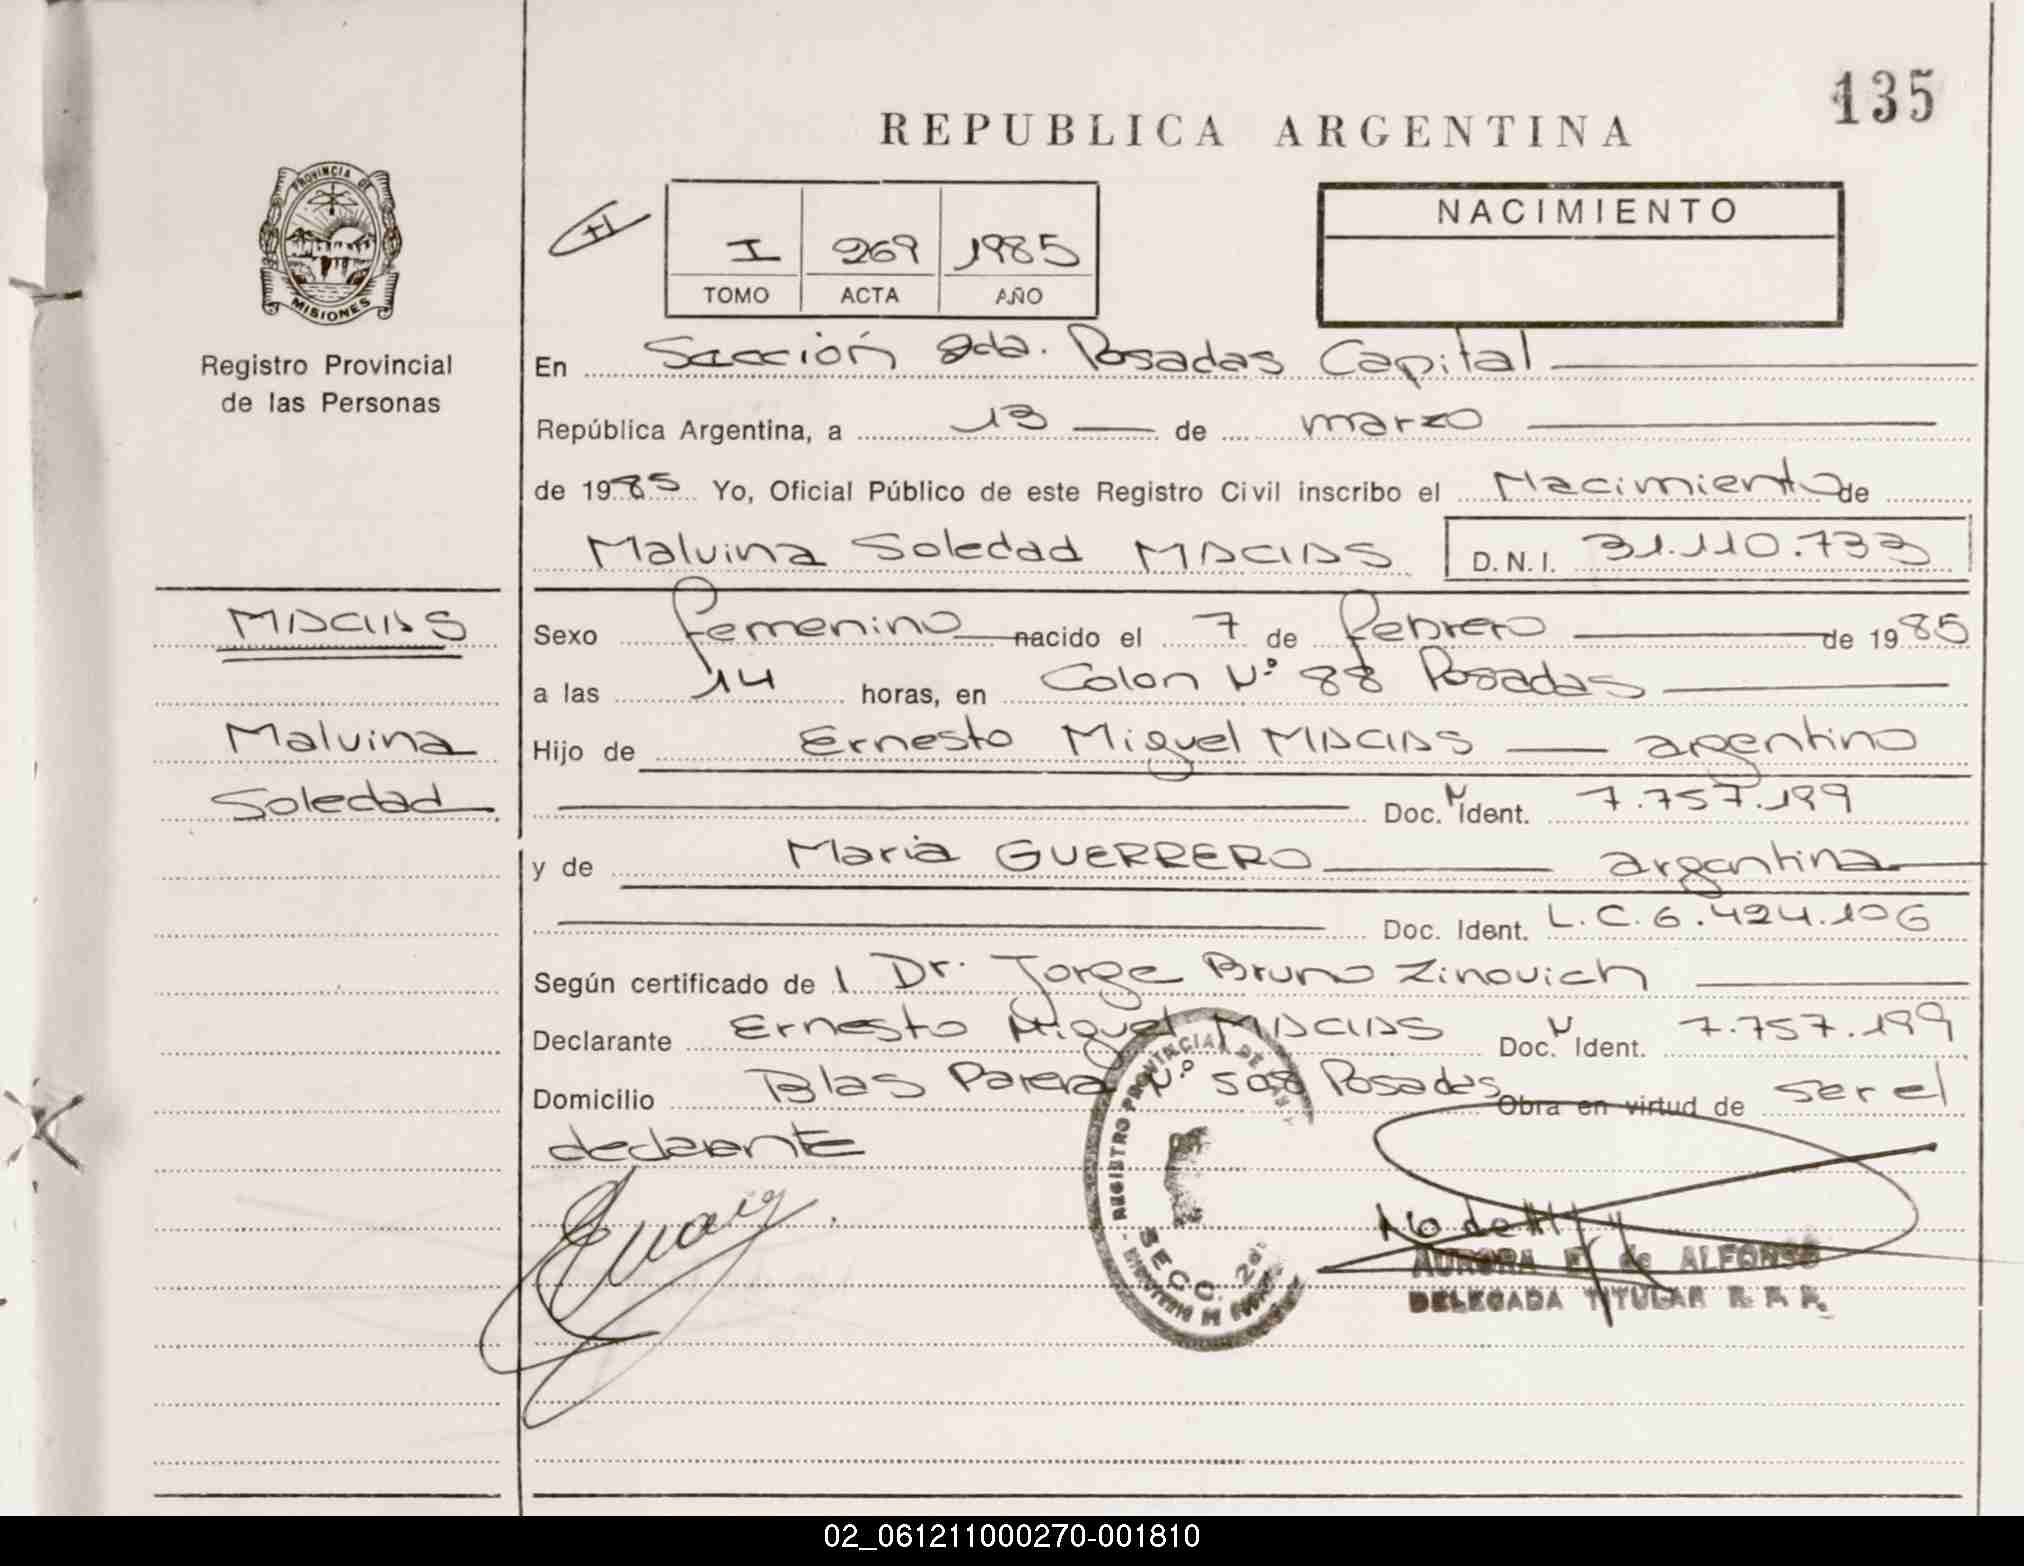 135
REPUBLICA ARGENTINA
PROVINCIA DE
MISIONES
Registro Provincial
de las Personas
I 269 1985
TOMO ACTA AÑO
NACIMIENTO
En Sección 2da. Posadas Capital
República Argentina, a 13 de marzo
de 1985 Yo, Oficial Público de este Registro Civil inscribo el Nacimiento de
Malvina Soledad MACIAS D.N.I. 31.110.733
MACIAS
Malvina
Soledad
Sexo femenino nacido el 7 de febrero de 1985
a las 14 horas, en Colon Nº 88 Posadas
Hijo de Ernesto Miguel MACIAS argentino
Doc. N Ident. 7.757.199
y de Maria GUERRERO argentina
Doc. Ident. L.C. 6.424.106
Según certificado de l Dr. Jorge Bruno Zinovich
Declarante Ernesto Miguel MACIAS Doc. N Ident. 7.757.199
Domicilio Blas Parera Nº 508 Posadas Obra en virtud de ser el
declarante
REGISTRO PROVINCIAL DE LAS
SECC. 2da.
AURORA de ALFONSO
DELEGADA TITULAR R. P. P.
02_061211000270-001810